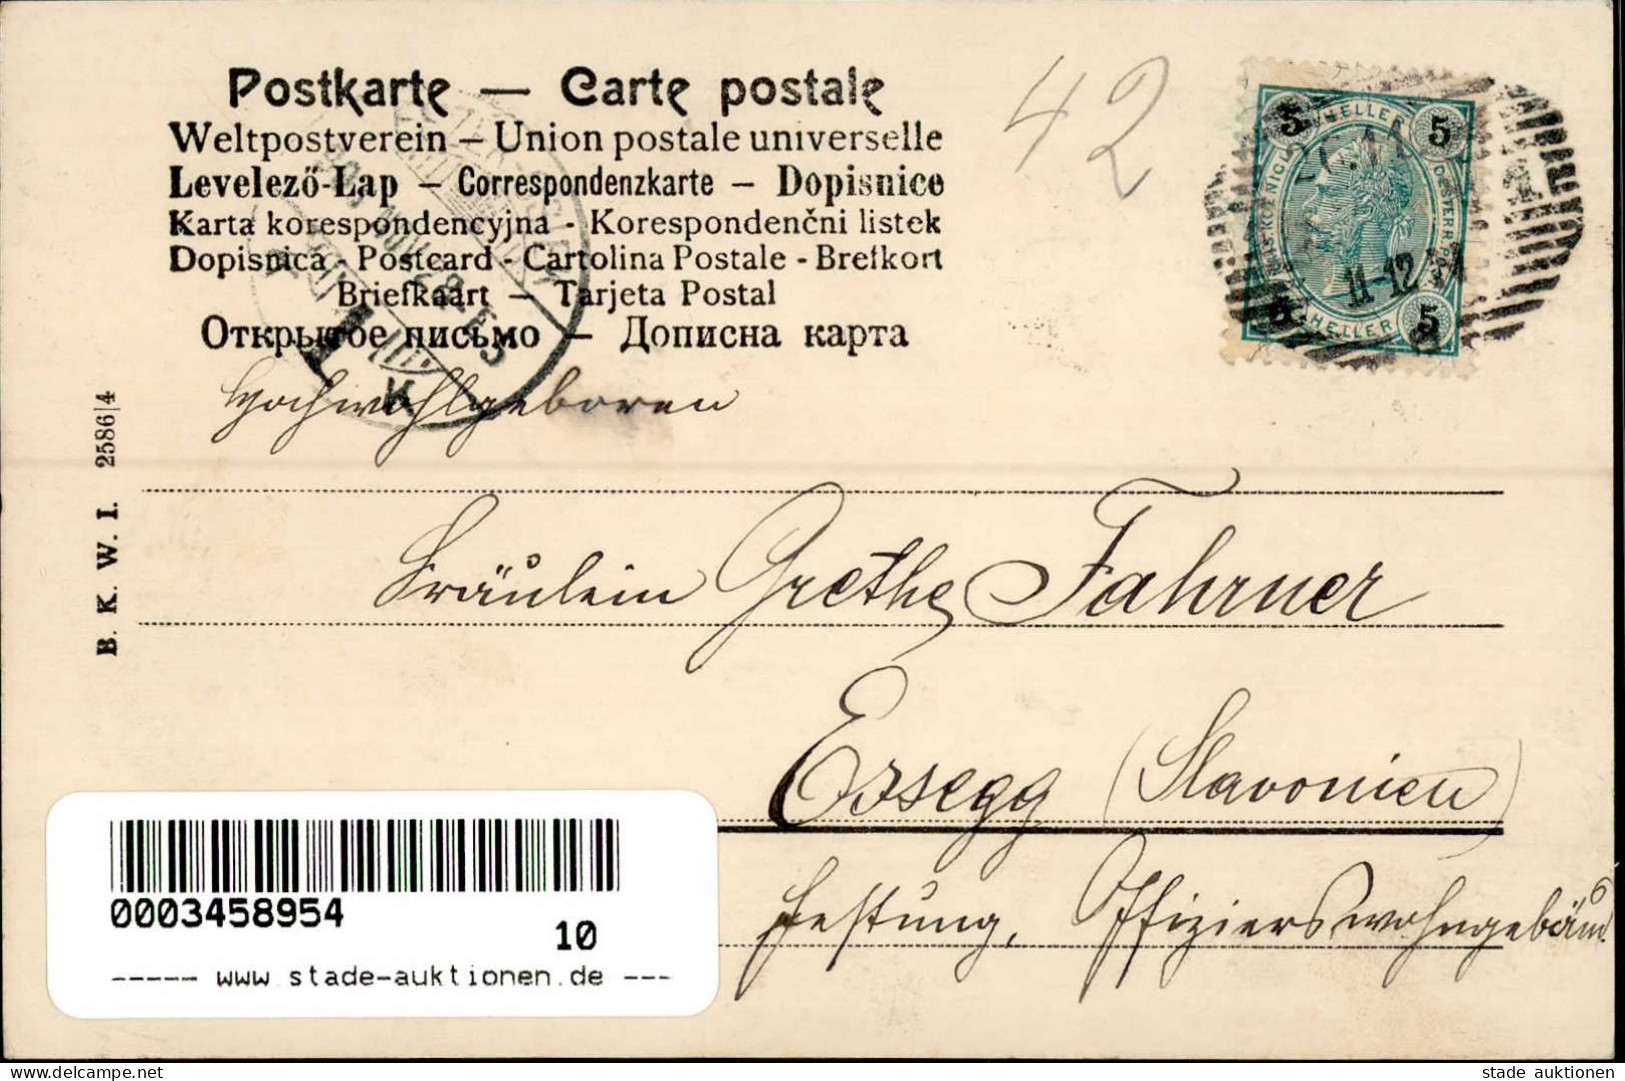 Postkarte — Carte postale
Weltpostverein – Union postale universelle
Levelező-Lap – Correspondenzkarte – Dopisnice
Karta korespondencyjna - Korespondenční listek
Dopisnica - Postcard - Cartolina Postale - Brefkort
Briefkaart — Tarjeta Postal
Открытое письмо — Дописна карта
42
5 HELLER 5
5 HELLER 5
11-12
K
B. K. W. I. 2586|4
Hochwohlgeboren
Fräulein Grethe Fahrner
Essegg (Slavonien)
Festung, Offizierswohngebäud.
0003458954
10
----- www.stade-auktionen.de ---
delcampe.net
stade auktionen